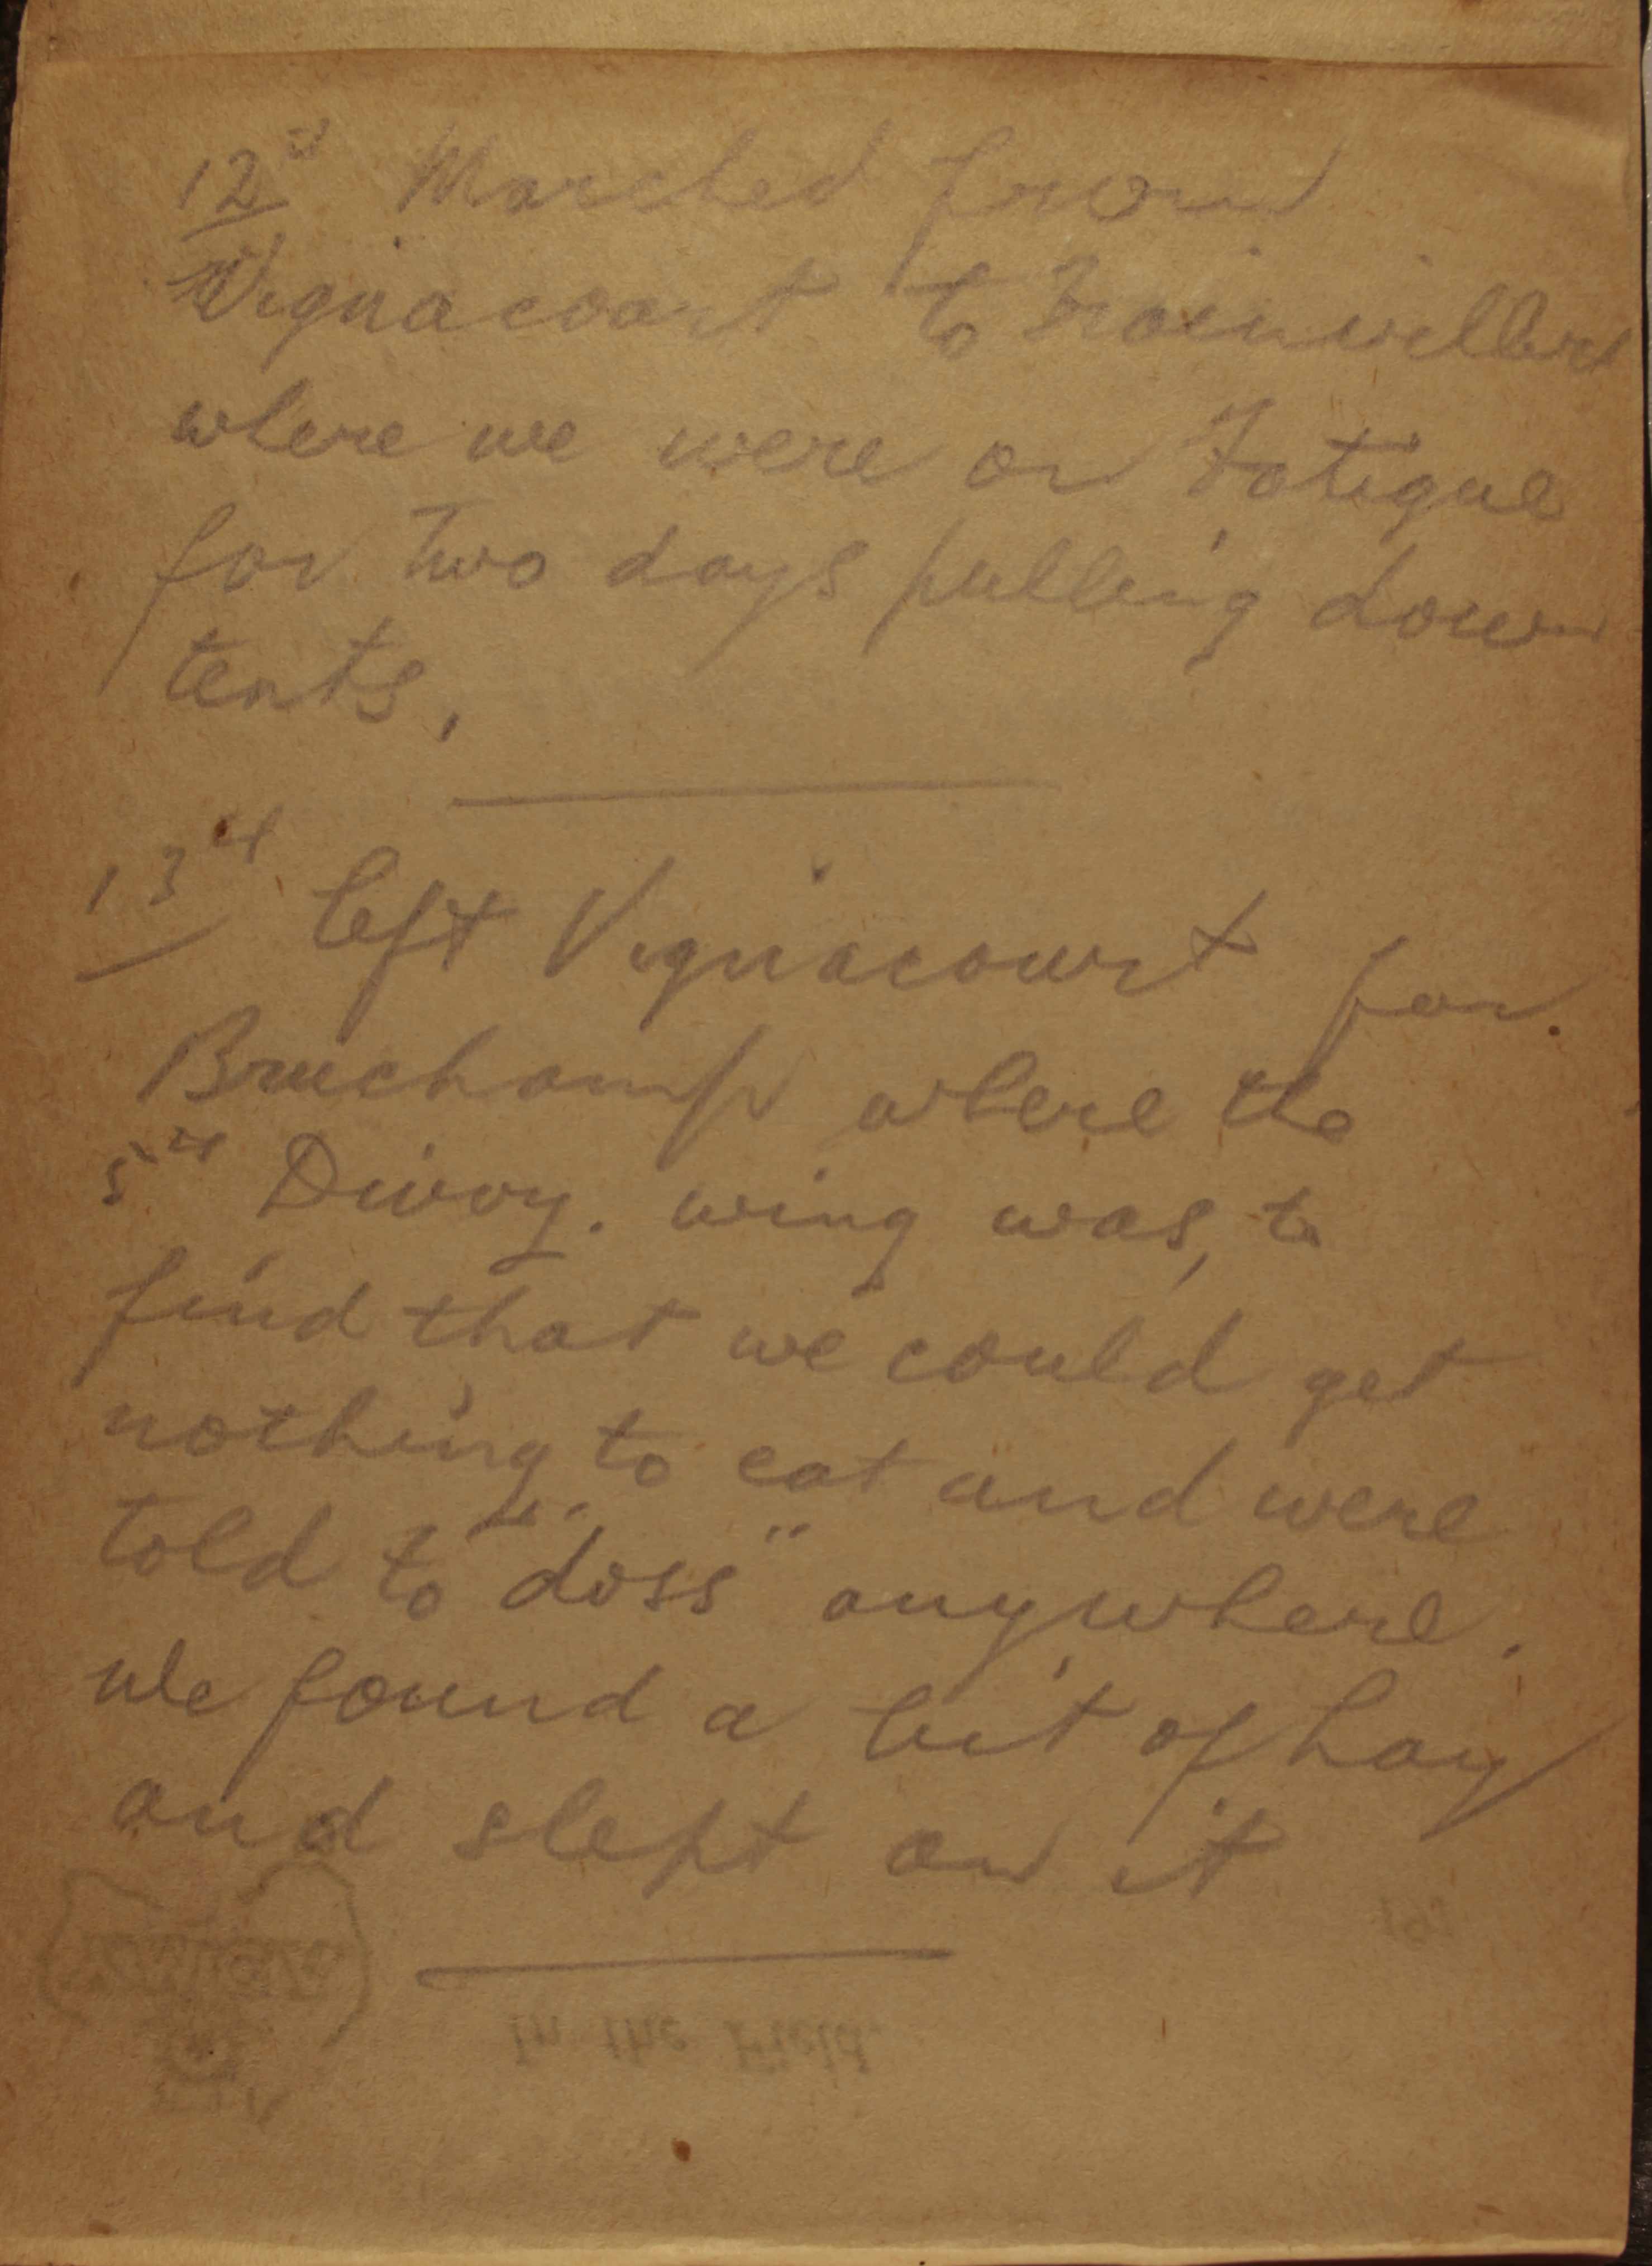 12th Marched from
Vignacourt to Frainvillers
where we were on Fatigue
for Two days pulling down
tents.
13th left Vignacourt for
Bruchamp where the
5th Divvy. wing was, to
find that we could get
nothing to eat and were
told to "doss" anywhere.
We found a bit of hay
and slept on it
In the Field.